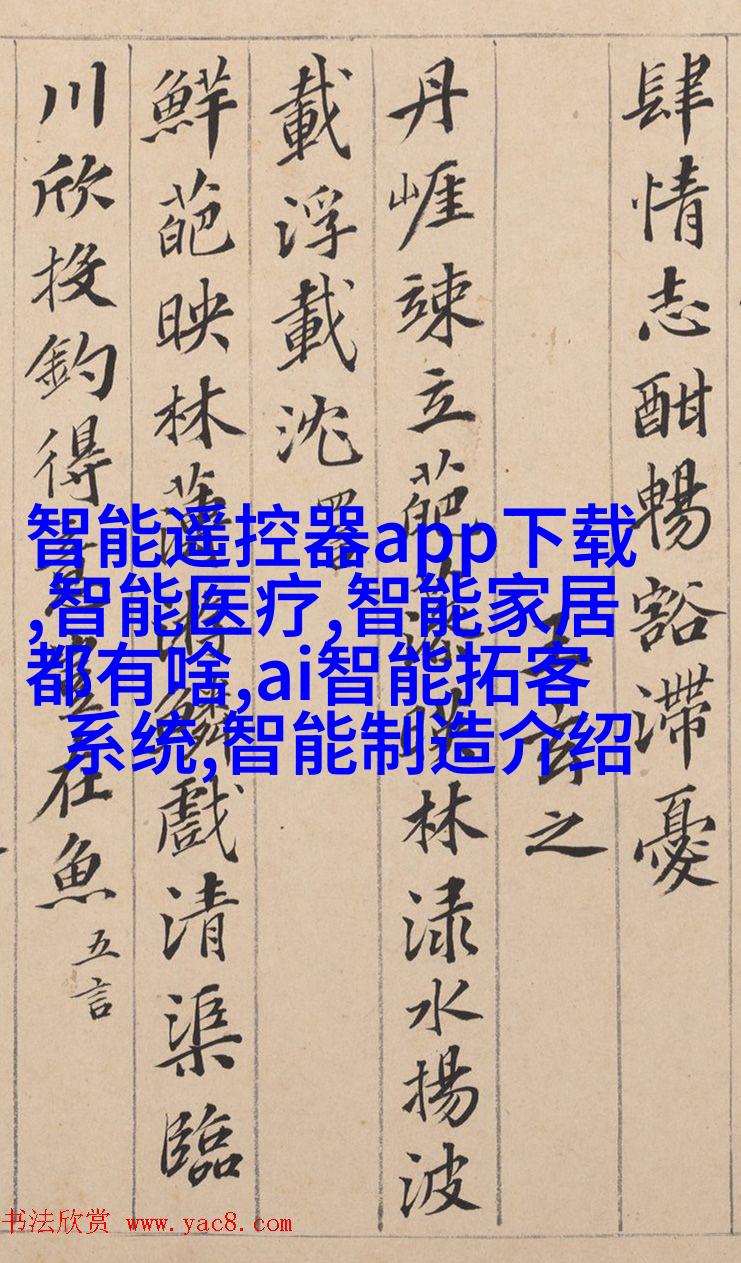 肆情志酣暢豁滯憂
王玄之
丹崖竦立葩藻暎林渌水揚波
載浮載沈
鮮葩映林薄游鱗戲清渠臨
川欣投釣得意豈在魚 五言
智能遥控器app下载
,智能医疗,智能家居
都有啥,ai智能拓客
系统,智能制造介绍
书法欣赏 www.yac8.com